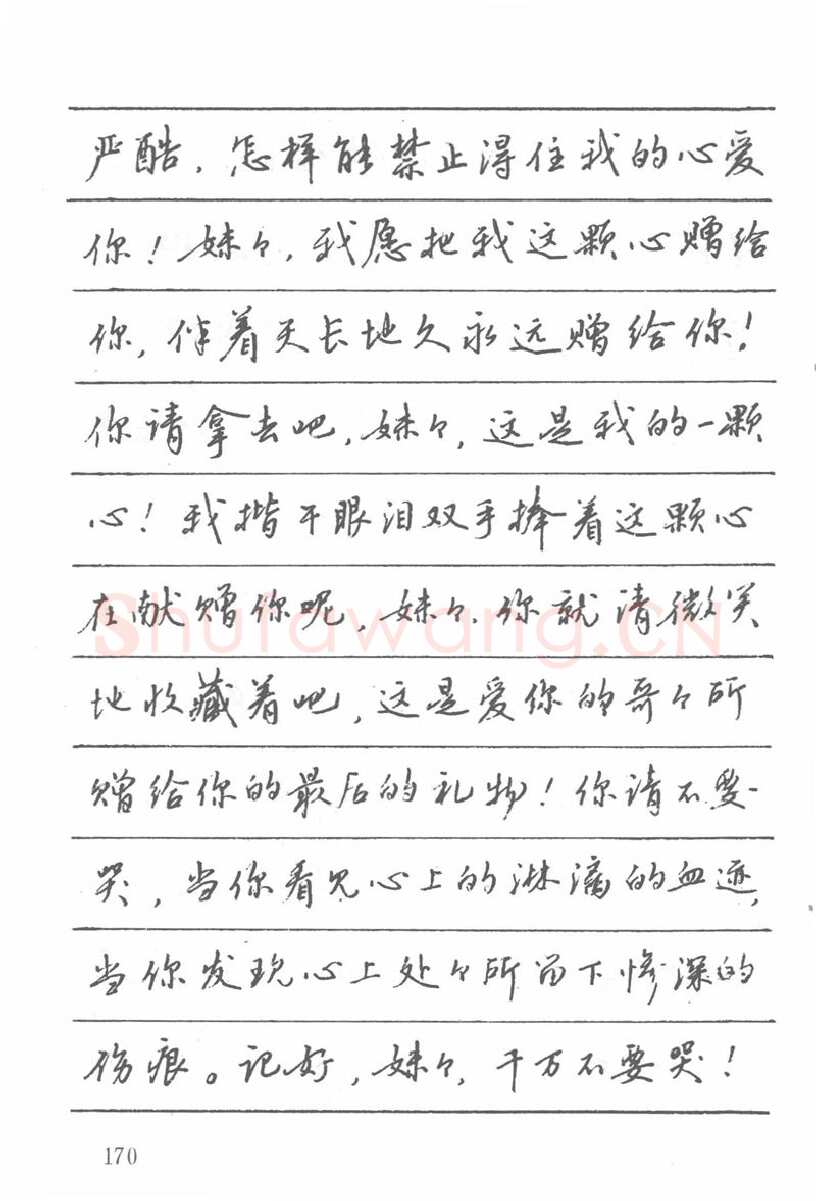 严酷，怎样能禁止得住我的心爱
你！妹々，我愿把我这颗心赠给
你，伴着天长地久永远赠给你！
你请拿去吧，妹々，这是我的一颗
心！我揩干眼泪双手捧着这颗心
在献赠你呢，妹々，你就请微笑
地收藏着吧，这是爱你的哥々所
赠给你的最后的礼物！你请不要
哭，当你看见心上的淋漓的血迹，
当你发现心上处々所留下惨深的
伤痕。记好，妹々，千万不要哭！
170
Shufawang.CN